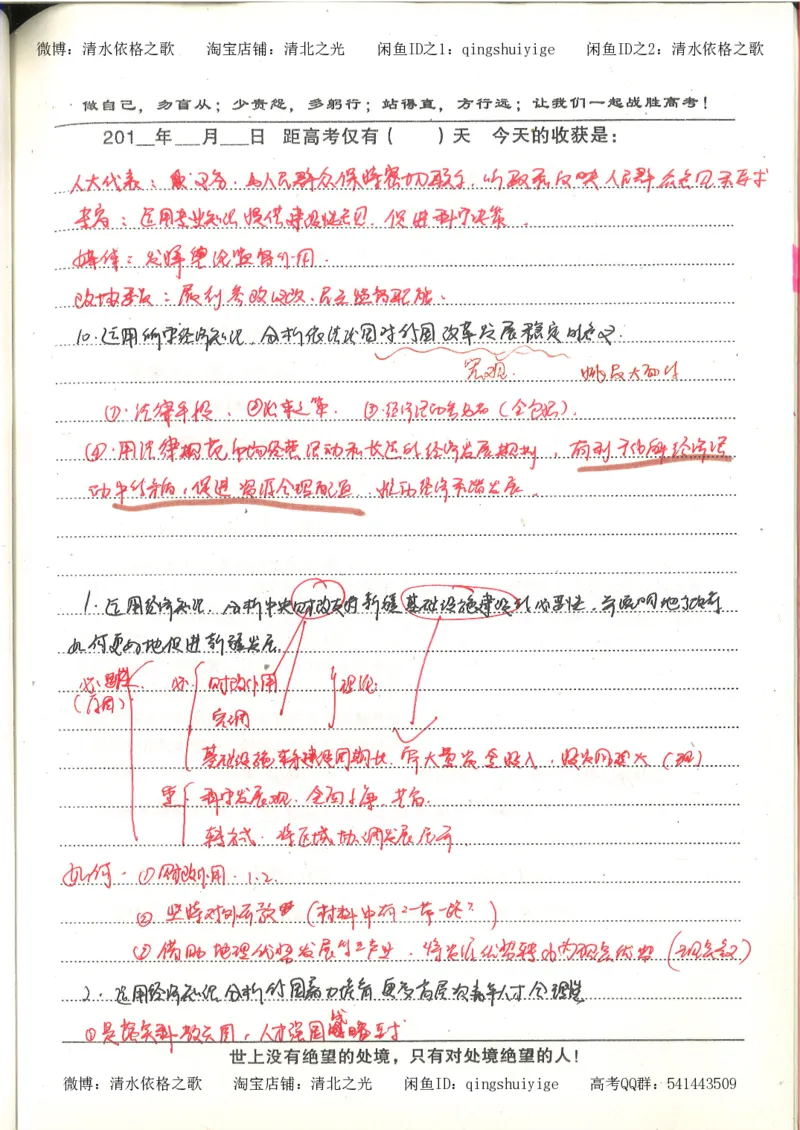 微博：清水依格之歌 淘宝店铺：清北之光 闲鱼ID之1：qingshuiyige 闲鱼ID之2：清水依格之歌
做自己，勿盲从；少责怨，多躬行；站得直，方行远；让我们一起战胜高考！
201__年___月___日 距高考仅有（ ）天 今天的收获是：
人大代表：义务：与人民群众保持密切联系，听取和反映人民群众意见和要求
专家：运用专业知识提供建设性意见，促进科学决策．
媒体：发挥舆论监督作用．
政协委员：履行参政议政、民主监督职能．
10．运用所学经济知识，分析依法治国对我国改革发展稳定的意义．
宏观．
①．法律手段．②
④．用法律规范市场经营活动和长远的经济发展规划，有利于
促进资源合理配置．推动经济平稳发展．
1．运用经济知识，分析中央财政支持新疆基础设施建设的必要性，并说明地方政府
如何更好地促进新疆发展．
必要性（原因） 必 财政作用 理论
宏调
基础设施建设周期长，需大量资金投入，投资风险大（现）
重 科学发展观．全面小康．共富．
转方式．将区域协调发展
如何．①财政作用．1.2．
②坚持对外开放（材料中有"一带一路"）
③借助地理优势发展 产业．将资源优势转化为
2．运用经济知识分析我国着力培育更多高层次青年人才合理性
①是落实科教兴国，人才强国战略要求
世上没有绝望的处境，只有对处境绝望的人！
微博：清水依格之歌 淘宝店铺：清北之光 闲鱼ID：qingshuiyige 高考QQ群：541443509